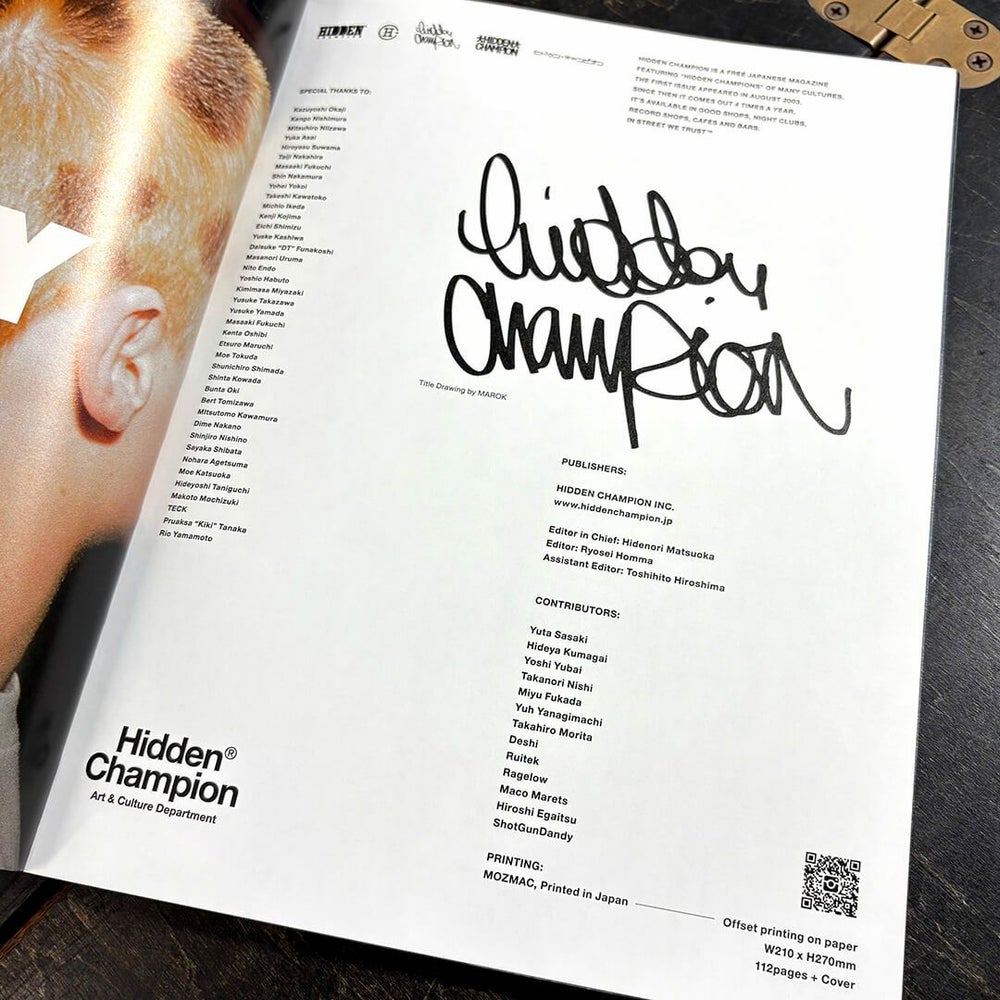 Y
HIDDEN
CHAMPION
HC
hidden
Champion
HIDDEN
CHAMPION
ヒドゥン・チャンピオン
HIDDEN CHAMPION IS A FREE JAPANESE MAGAZINE
FEATURING "HIDDEN CHAMPIONS" OF MANY CULTURES.
THE FIRST ISSUE APPEARED IN AUGUST 2003.
SINCE THEN IT COMES OUT 4 TIMES A YEAR.
IT'S AVAILABLE IN GOOD SHOPS, NIGHT CLUBS,
RECORD SHOPS, CAFES AND BARS.
IN STREET WE TRUST™
SPECIAL THANKS TO:
Kazuyoshi Okaji
Kango Nishimura
Mitsuhiro Niizawa
Yuka Asai
Hiroyasu Suwama
Taiji Nakahira
Masaaki Fukuchi
Shin Nakamura
Yohei Yokoi
Takeshi Kawatoko
Michio Ikeda
Kenji Kojima
Eichi Shimizu
Yuske Kashiwa
Daisuke "DT" Funakoshi
Masanori Uruma
Nito Endo
Yoshio Habuto
Kimimasa Miyazaki
Yusuke Takazawa
Yusuke Yamada
Masaaki Fukuchi
Kenta Oshibi
Etsuro Maruchi
Moe Tokuda
Shunichiro Shimada
Shinta Kowada
Bunta Oki
Bert Tomizawa
Mitsutomo Kawamura
Dime Nakano
Shinjiro Nishino
Sayaka Shibata
Nohara Agetsuma
Moe Katsuoka
Hideyoshi Taniguchi
Makoto Mochizuki
TECK
Pruaksa "Kiki" Tanaka
Rio Yamamoto
hidden
Champion
Title Drawing by MAROK
PUBLISHERS:
HIDDEN CHAMPION INC.
www.hiddenchampion.jp
Editor in Chief: Hidenori Matsuoka
Editor: Ryosei Homma
Assistant Editor: Toshihito Hiroshima
CONTRIBUTORS:
Yuta Sasaki
Hideya Kumagai
Yoshi Yubai
Takanori Nishi
Miyu Fukada
Yuh Yanagimachi
Takahiro Morita
Deshi
Ruitek
Ragelow
Maco Marets
Hiroshi Egaitsu
ShotGunDandy
Hidden®
Champion
Art & Culture Department
PRINTING:
MOZMAC, Printed in Japan
Offset printing on paper
W210 x H270mm
112pages + Cover